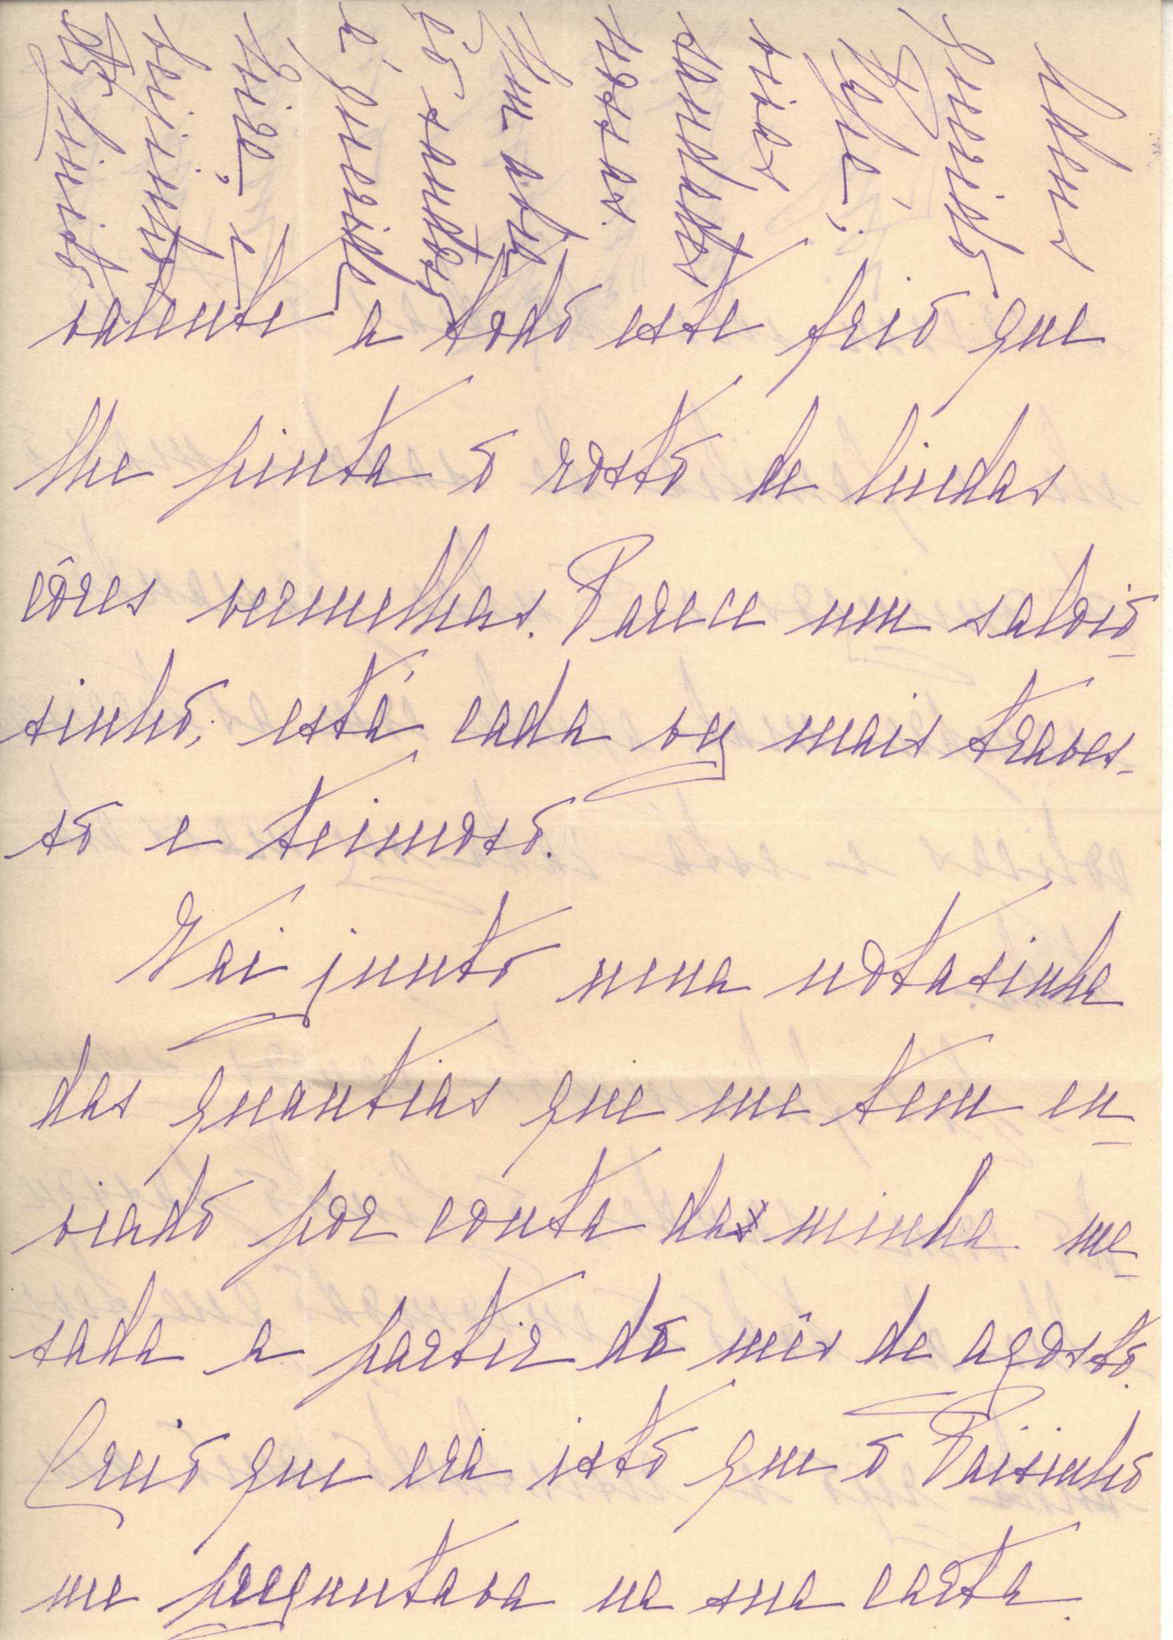 Adeus
querido
vivas
saudades
nossas.
Um abra
ço saudoso
à querida
e
beijinhos
do
valente a todo este frio que
lhe pinta o rosto de lindas
côres vermelhas. Parece um saloio-
sinho; está cada vez mais traves-
so e teimoso.
Vai junto uma notasinha
das quantias que me tem en-
viado por conta da minha me-
sada a partir do mês de agosto.
Creio que era isto que o Paisinho
me preguntava na sua carta.